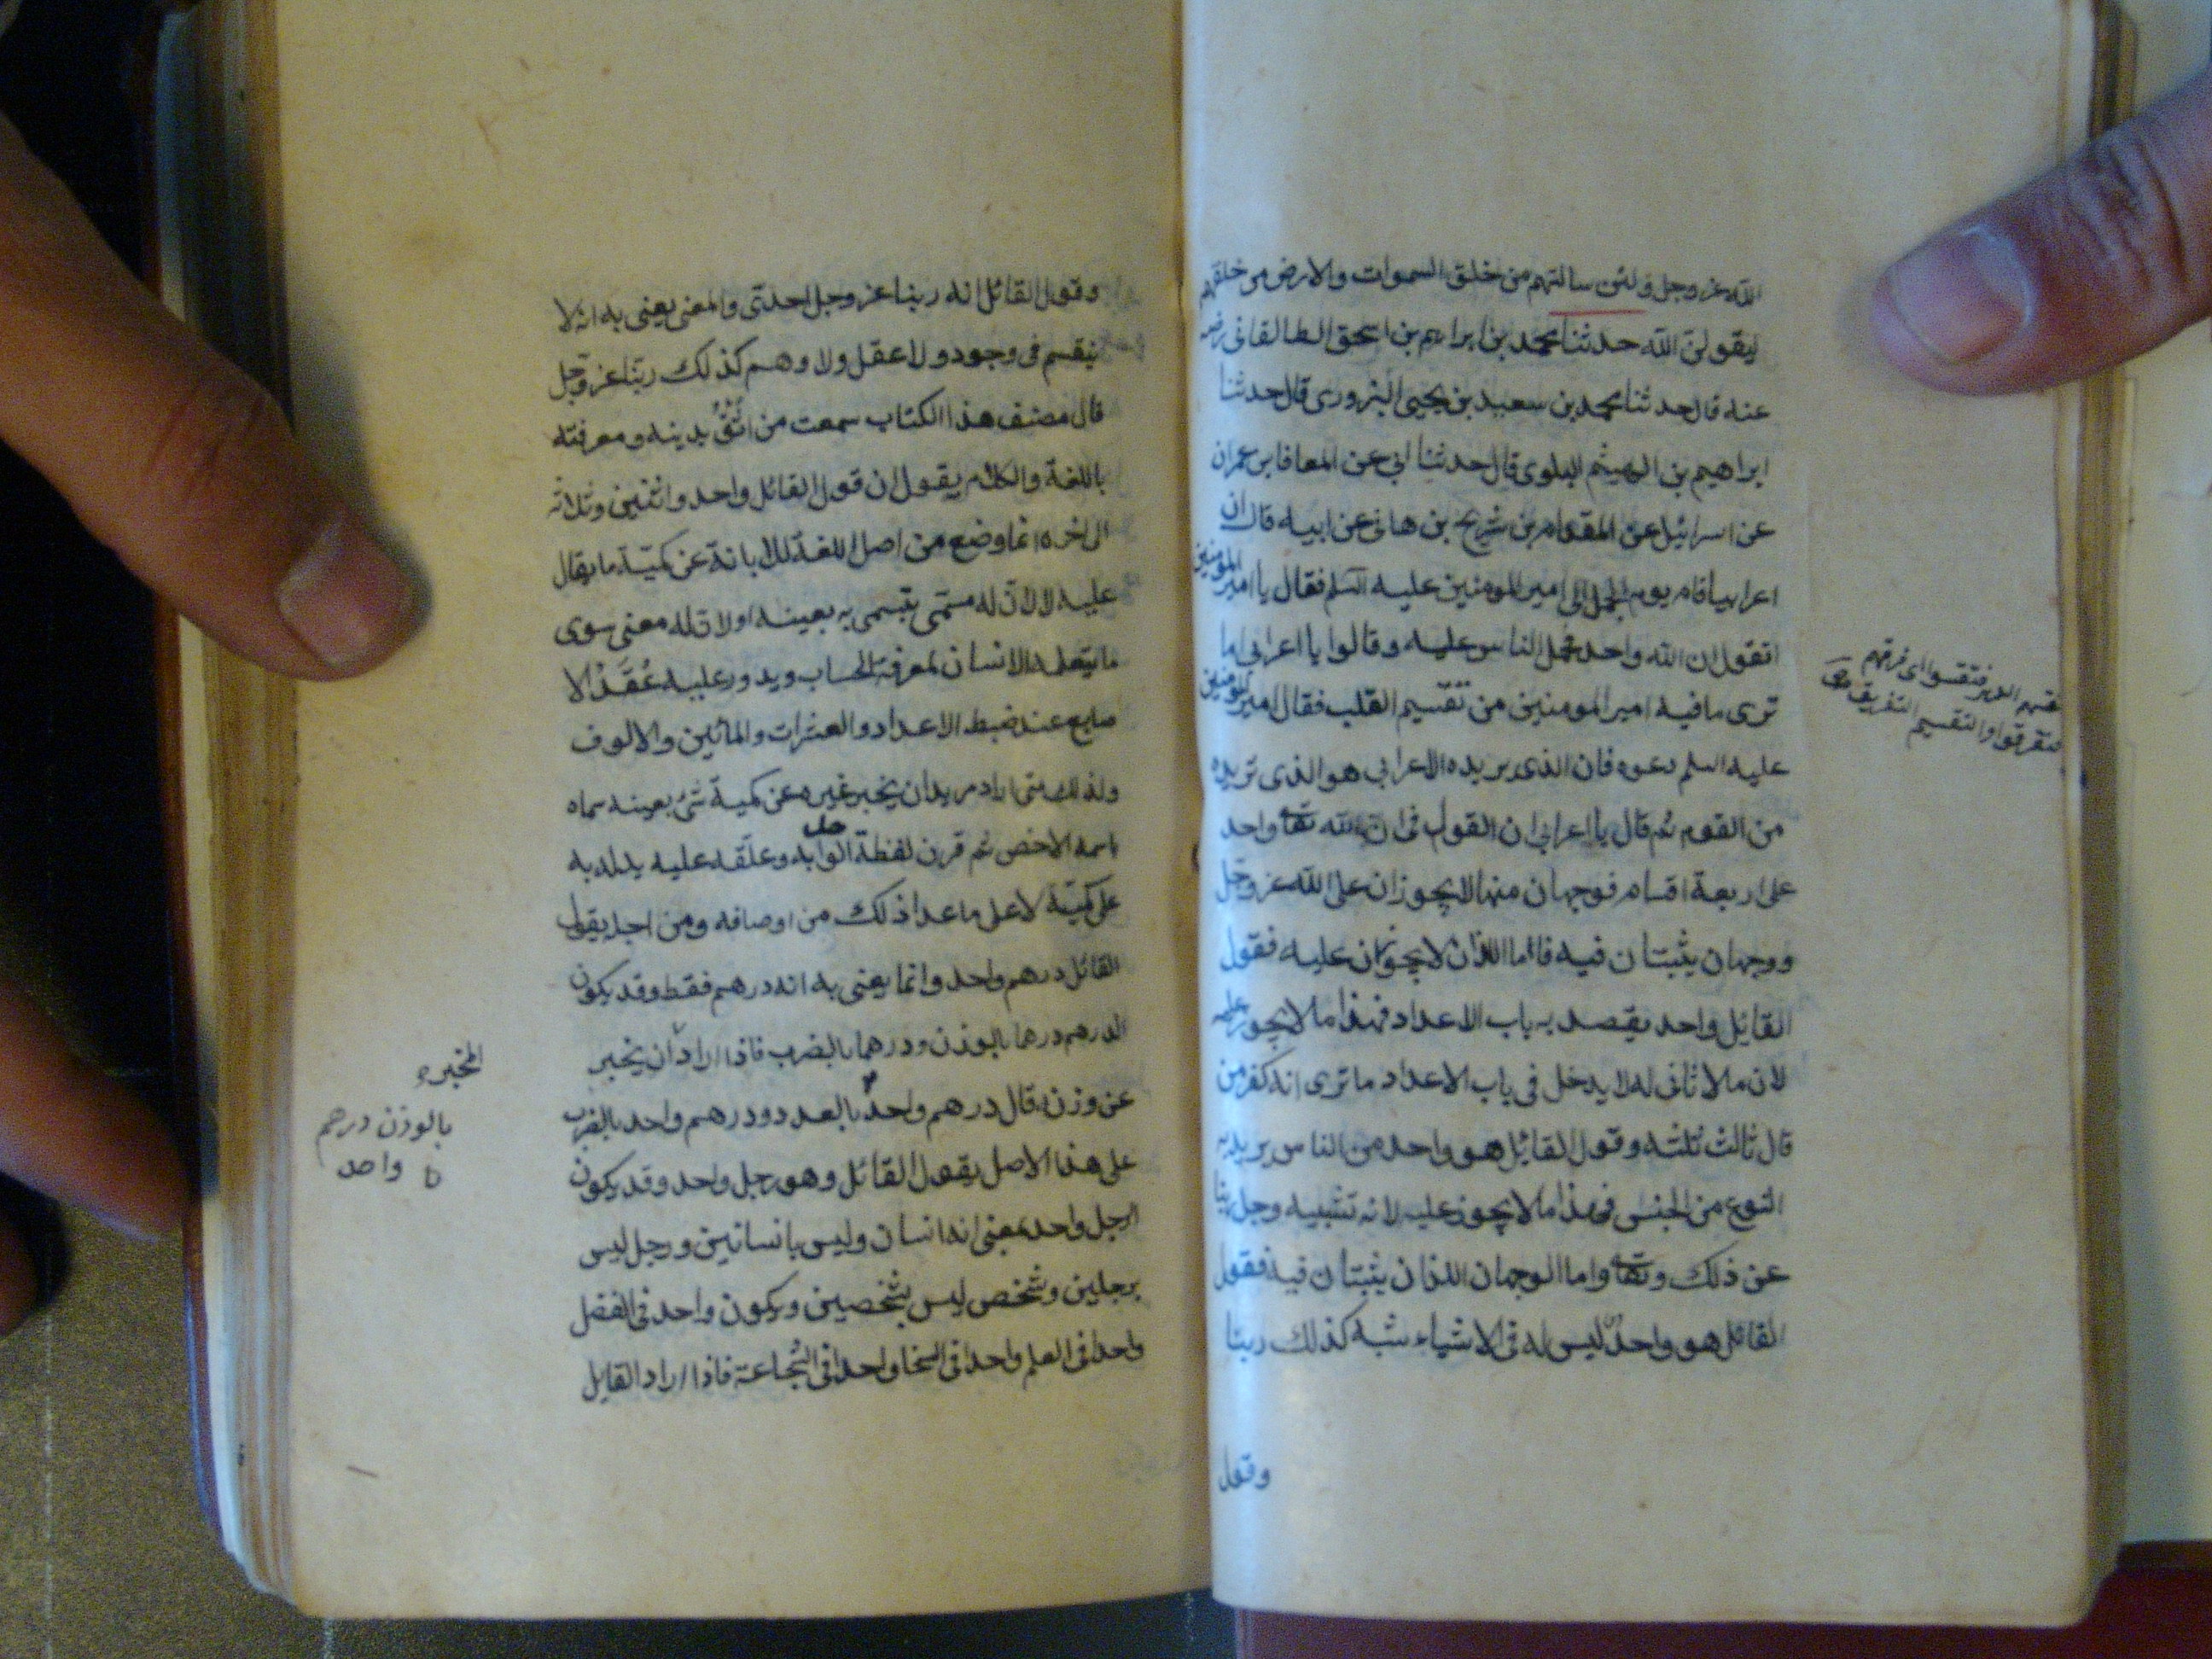 الله عز وجل ولئن سالتهم من خلق السموات والارض من خلقهم
ليقولن الله حدثنا محمد بن ابراهيم بن اسحق الطالقانى رضى
عنه قال حدثنا محمد بن سعيد بن يحيى البزورى قال حدثنا
ابراهيم بن الهيثم البلوى قال حدثنا ابى عن المعافا بن عمران
عن اسرائيل عن المقدام بن شريح بن هانى عن ابيه قال ان
اعرابيا قام يوم الجمل الى امير المومنين عليه السلم فقال يا امير المومنين
اتقول ان الله واحد فحمل الناس عليه وقالوا يا اعرابى اما
ترى ما فيه امير المومنين من تقسيم القلب فقال امير المومنين
عليه السلم دعوه فان الذى يريده الاعرابى هو الذى نريده
من القوم ثم قال يا اعرابى ان القول فى ان الله تعا واحد
على اربعة اقسام فوجهان منها لا يجوزان على الله عز وجل
ووجهان يثبتان فيه فاما اللذان لا يجوزان عليه فقول
القائل واحد يقصد به باب الاعداد فهذا ما لا يجوز عليه
لان ما لا ثانى له لا يدخل فى باب الاعداد ما ترى انه كفر من
قال ثالث ثلثه وقول القائل هو واحد من الناس يريد به
النوع من الجنس فهذا ما لا يجوز عليه لانه تشبيه وجل ربنا
عن ذلك وتعا واما الوجهان اللذان يثبتان فيه فقول
القائل هو واحد ليس له فى الاشياء شبه كذلك ربنا
وقول
قسهم الدهر فتقسموا اى فرقهم
فتفرقوا والتقسيم التفريق
وقول القائل انه ربنا عز وجل احدى والمعنى يعنى به انه لا
ينقسم فى وجود ولا عقل ولا وهم كذلك ربنا عز وجل
قال مصنف هذا الكتاب سمعت من اثق بدينه ومعرفته
باللغة والكلام يقول ان قول القائل واحد واثنين وثلاثه
الى اخره انما وضع من اصل اللغة للابانة عن كمية ما يقال
عليه لا لان له مسمى يتسمى به بعينه او لان له معنى سوى
ما يتعلمه الانسان لمعرفة الحساب ويدور عليه عقد الا
صابع عند ضبط الاعداد والعشرات والمائين والالوف
ولذلك متى اراد مريد ان يخبر غيره عن كمية شئ بعينه سماه
باسمه الاخص ثم قرن لفظة الواحد به وعلقه عليه يدله به
على كميته لا على ما عدا ذلك من اوصافه ومن اجله يقول
القائل درهم واحد وانما يعنى به انه درهم فقط وقد يكون
الدرهم درهما بالوزن ودرهما بالضرب فاذا اراد ان يخبر
عن وزنه قال درهم واحد بالعدد ودرهم واحد بالضرب
على هذا الاصل يقول القائل وهو رجل واحد وقد يكون
الرجل واحد بمعنى انه انسان وليس بانسانين ورجل ليس
برجلين وشخص ليس بشخصين ويكون واحد فى الفضل
واحدا فى العلم واحدا فى السخا واحدا فى الشجاعة فاذا اراد القايل
المخبر
بالوزن درهم
واحد